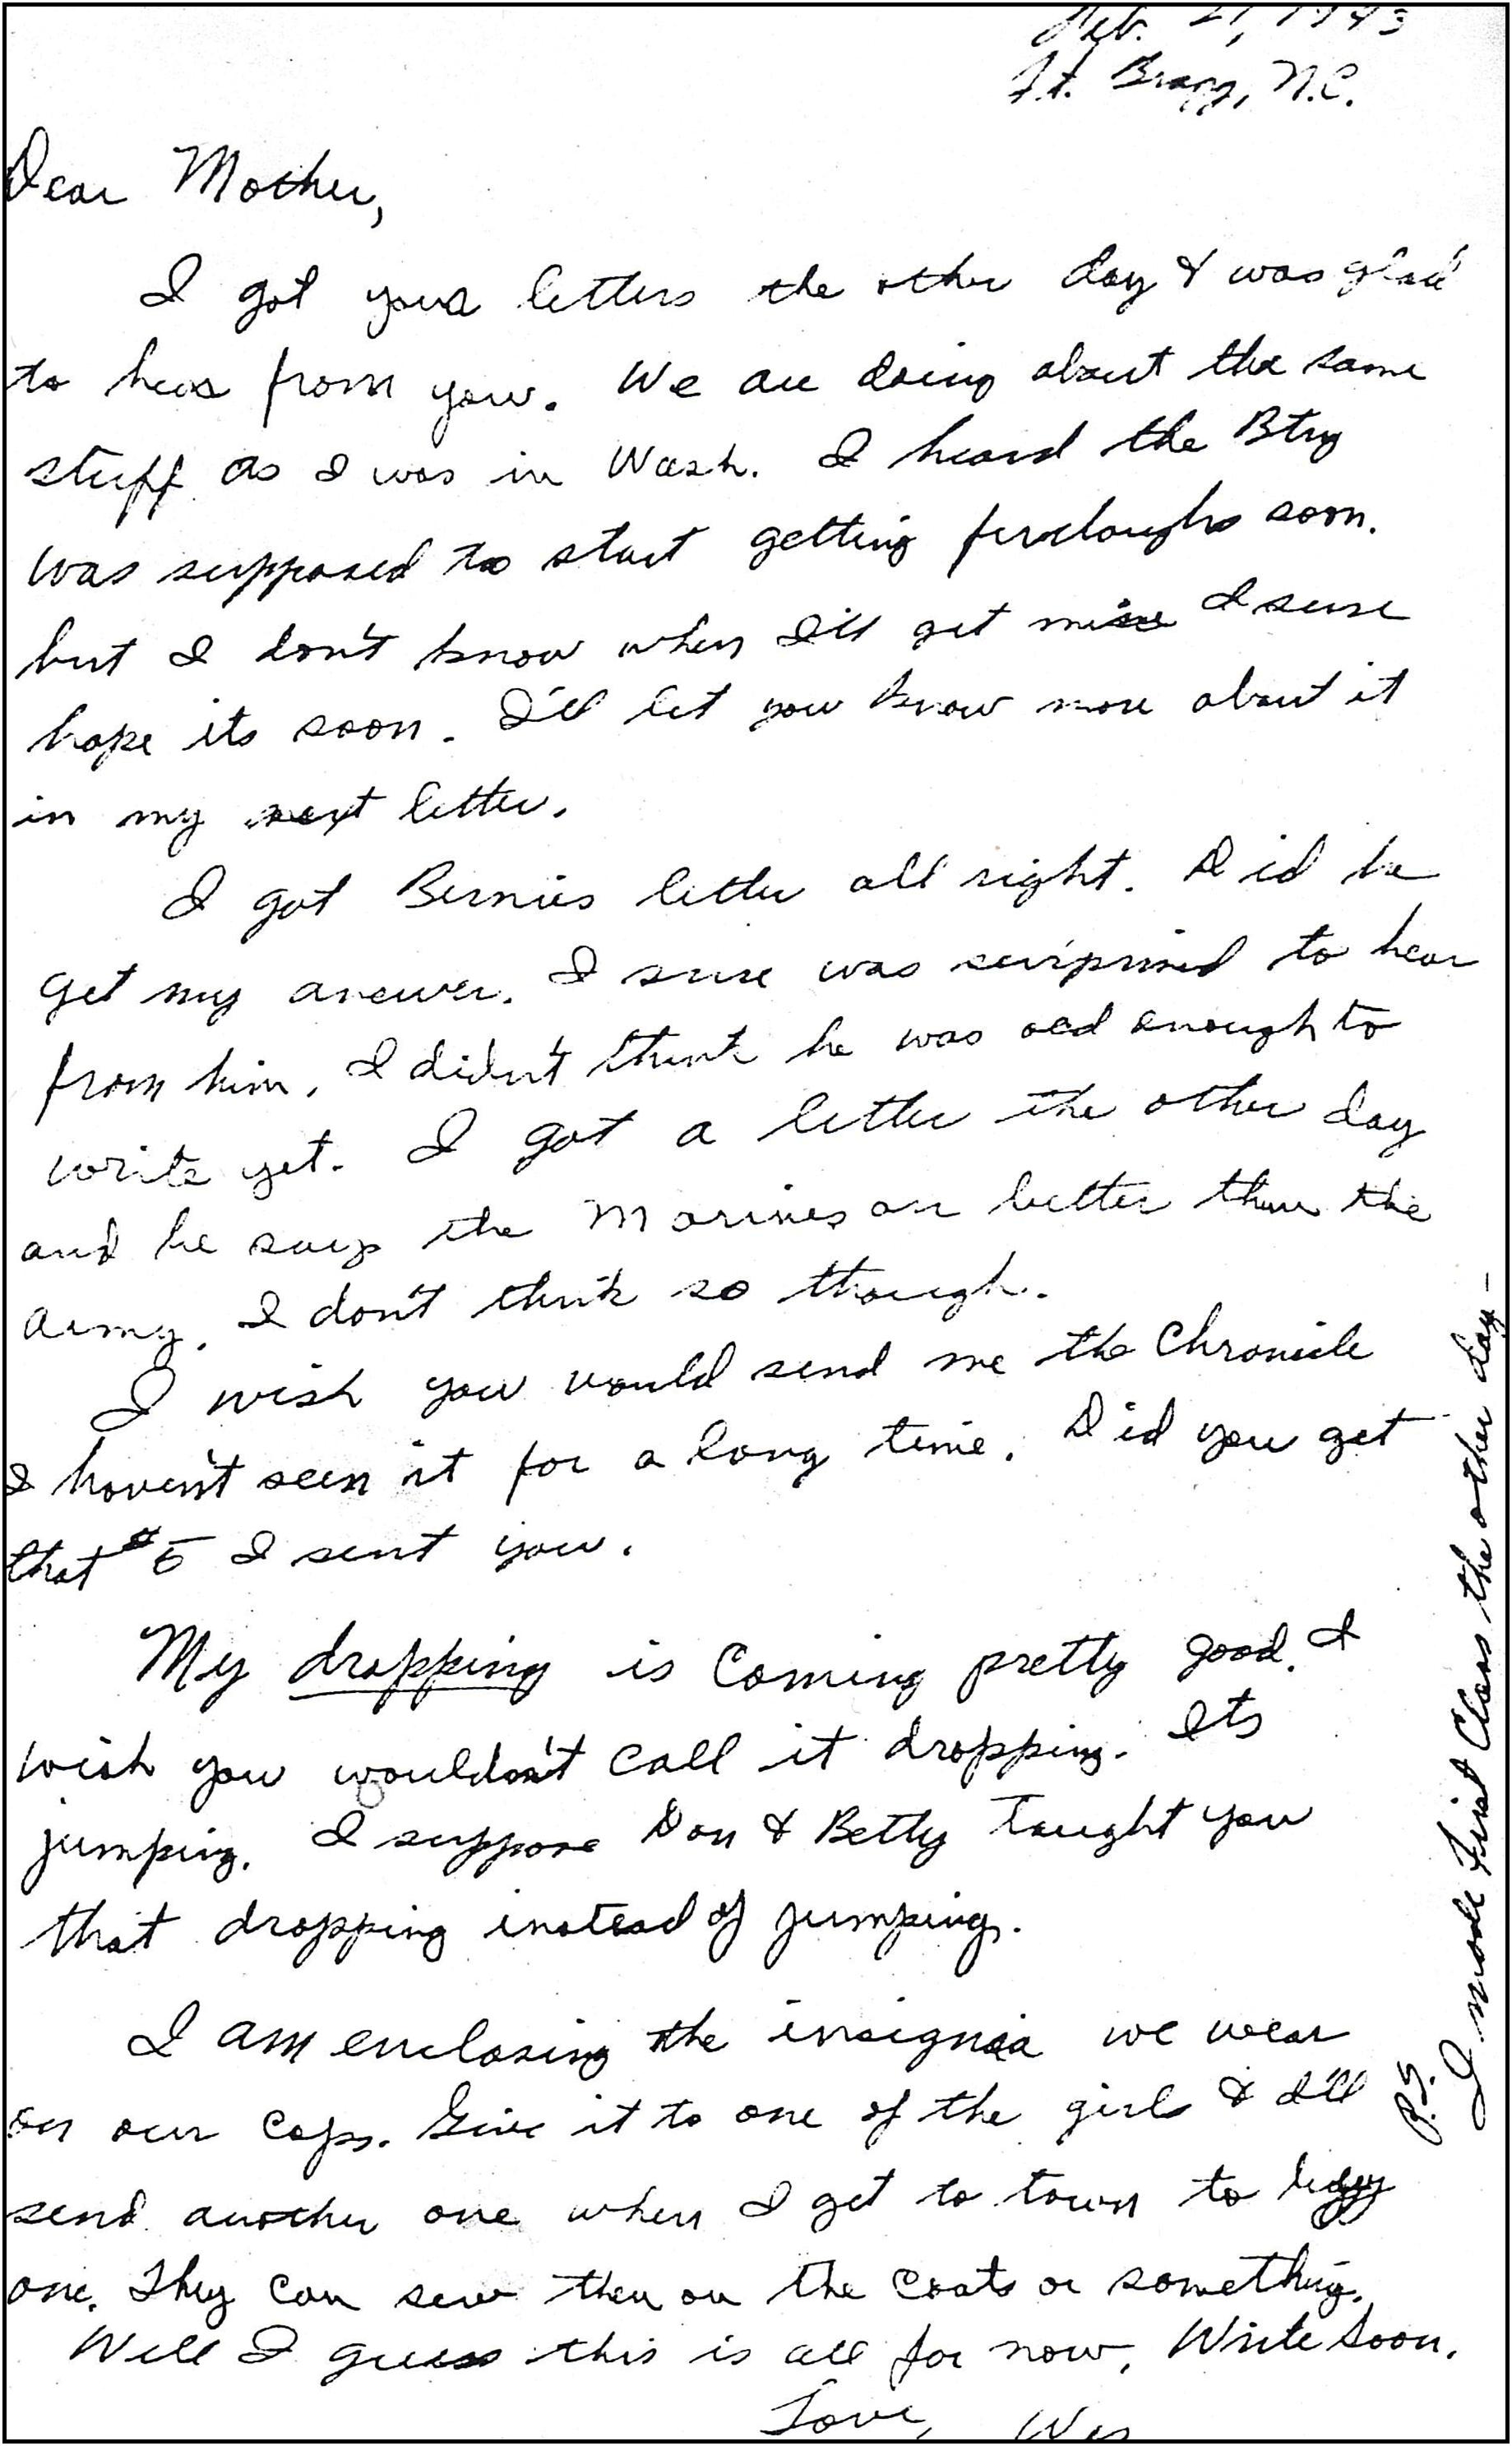 Feb. 21, 1943
Ft. Bragg, N.C.
Dear Mother,
I got your letters the other day & was glad
to hear from you. We are doing about the same
stuff as I was in Wash. I heard the Btry
was supposed to start getting fureloughs soon.
but I don't know when I'll get mine I sure
hope its soon. I'll let you know more about it
in my next letter.
I got Bernies letter all right. Did he
get my answer. I sure was surprised to hear
from him. I didn't think he was old enough to
write yet. I got a letter the other day
and he says the Marines are better than the
Army. I don't think so though.
I wish you would send me the Chronicle
I haven't seen it for a long time. Did you get
that $5 I sent you.
My dropping is coming pretty good. I
wish you wouldn't call it dropping. Its
jumping. I suppose Don & Betty taught you
that dropping instead of jumping.
I am enclosing the insignia we wear
on our caps. Give it to one of the girls & I'll
send another one when I get to town to buy
one. They can sew them on the coats or something.
Well I guess this is all for now. Write soon.
Love, Wes
P.S.
I made First Class the other day-